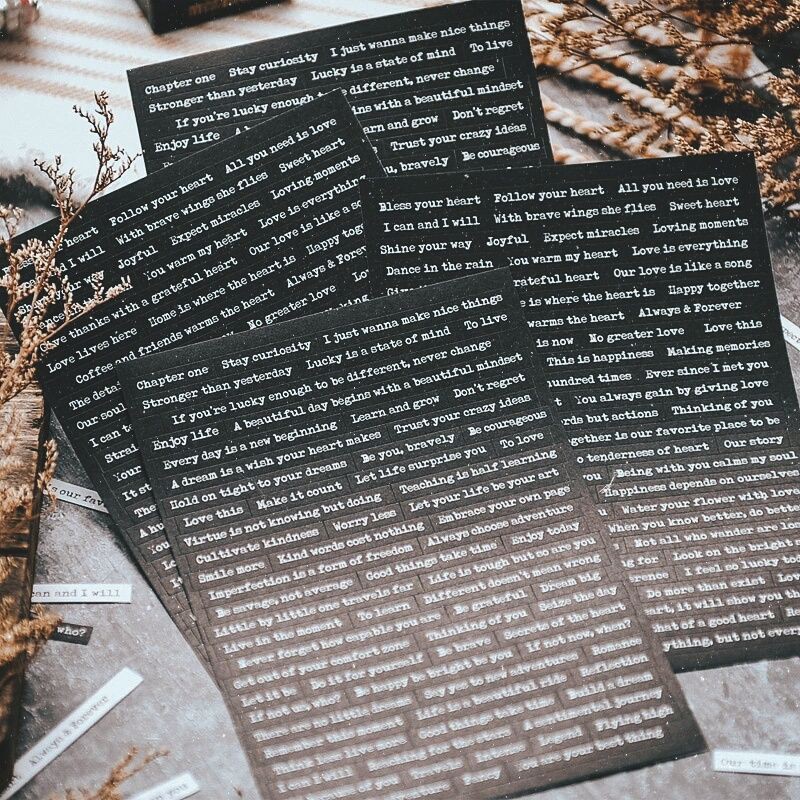 Chapter one Stay curiosity I just wanna make nice things
Stronger than yesterday Lucky is a state of mind To live
If you're lucky enough different, never change
Enjoy life ins with a beautiful mindset
arn and grow Don't regret
Trust your crazy ideas
u, bravely Be courageous
heart Follow your heart All you need is love
and I will With brave wings she flies Sweet heart
way Joyful Expect miracles Loving moments
You warm my heart Love is everything
Give thanks with a grateful heart Our love is like a so
Love lives here Home is where the heart is Happy toge
Coffee and friends warms the heart Always & Forev
The detai No greater love
Our soul
I can t
Your
It st
Bless your heart Follow your heart All you need is love
I can and I will With brave wings she flies Sweet heart
Shine your way Joyful Expect miracles Loving moments
Dance in the rain You warm my heart Love is everything
grateful heart Our love is like a song
e is where the heart is Happy together
warms the heart Always & Forever
is now No greater love Love this
This is happiness Making memories
hundred times Ever since I met you
t You always gain by giving love
rds but actions Thinking of you
ogether is our favorite place to be
o tenderness of heart Our story
you Being with you calms my soul
Happiness depends on ourselves
Water your flower with love
When you know better, do bette
Not all who wander are los
g for Look on the bright s
erence I feel so lucky to
Do more than exist Lov
eart, it will show you th
hat of a good heart
ything, but not every
Chapter one Stay curiosity I just wanna make nice things
Stronger than yesterday Lucky is a state of mind To live
If you're lucky enough to be different, never change
Enjoy life A beautiful day begins with a beautiful mindset
Every day is a new beginning Learn and grow Don't regret
A dream is a wish your heart makes Trust your crazy ideas
Hold on tight to your dreams Be you, bravely Be courageous
Love this Make it count Let life surprise you To love
Virtue is not knowing but doing Teaching is half learning
Cultivate kindness Worry less Let your life be your art
Smile more Kind words cost nothing Embrace your own page
Imperfection is a form of freedom Always choose adventure
Be savage, not average Good things take time Enjoy today
Little by little one travels far Life is tough but so are you
Live in the moment To learn Different doesn't mean wrong
Never forget how capable you are Be grateful Dream big
Get out of your comfort zone Thinking of you Seize the day
Let it be Do it for yourself Be brave Secrets of the heart
If not us, who? Be happy be bright be you If not now, when?
There are no little Say yes to new adventures Romance
Remember this moment Life is a beautiful ride Reflection
Think less live more Good things take time Build a dream
I can I will Sentimental journey
Travels Legend Flying high
Enjoy You are your best thing
can and I will
who?
Always & Forever
Our time is